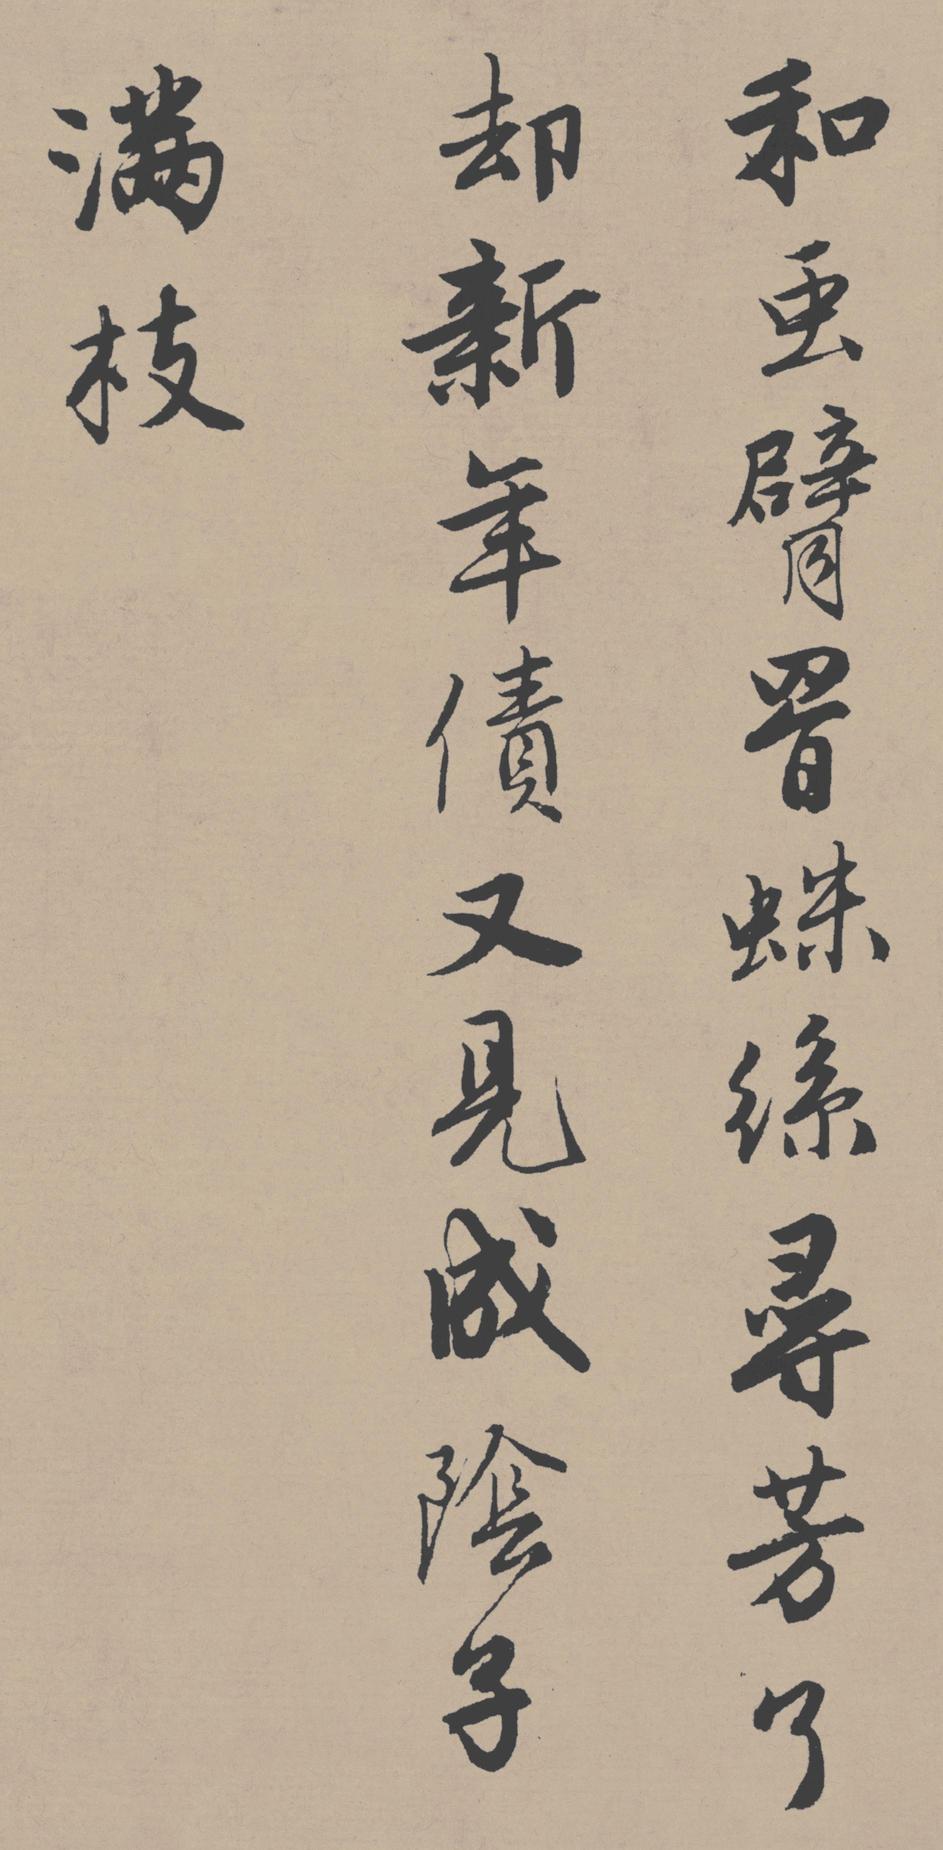 和䖝臂罥蛛絲尋芳了
却新年債又見成陰子
滿枝